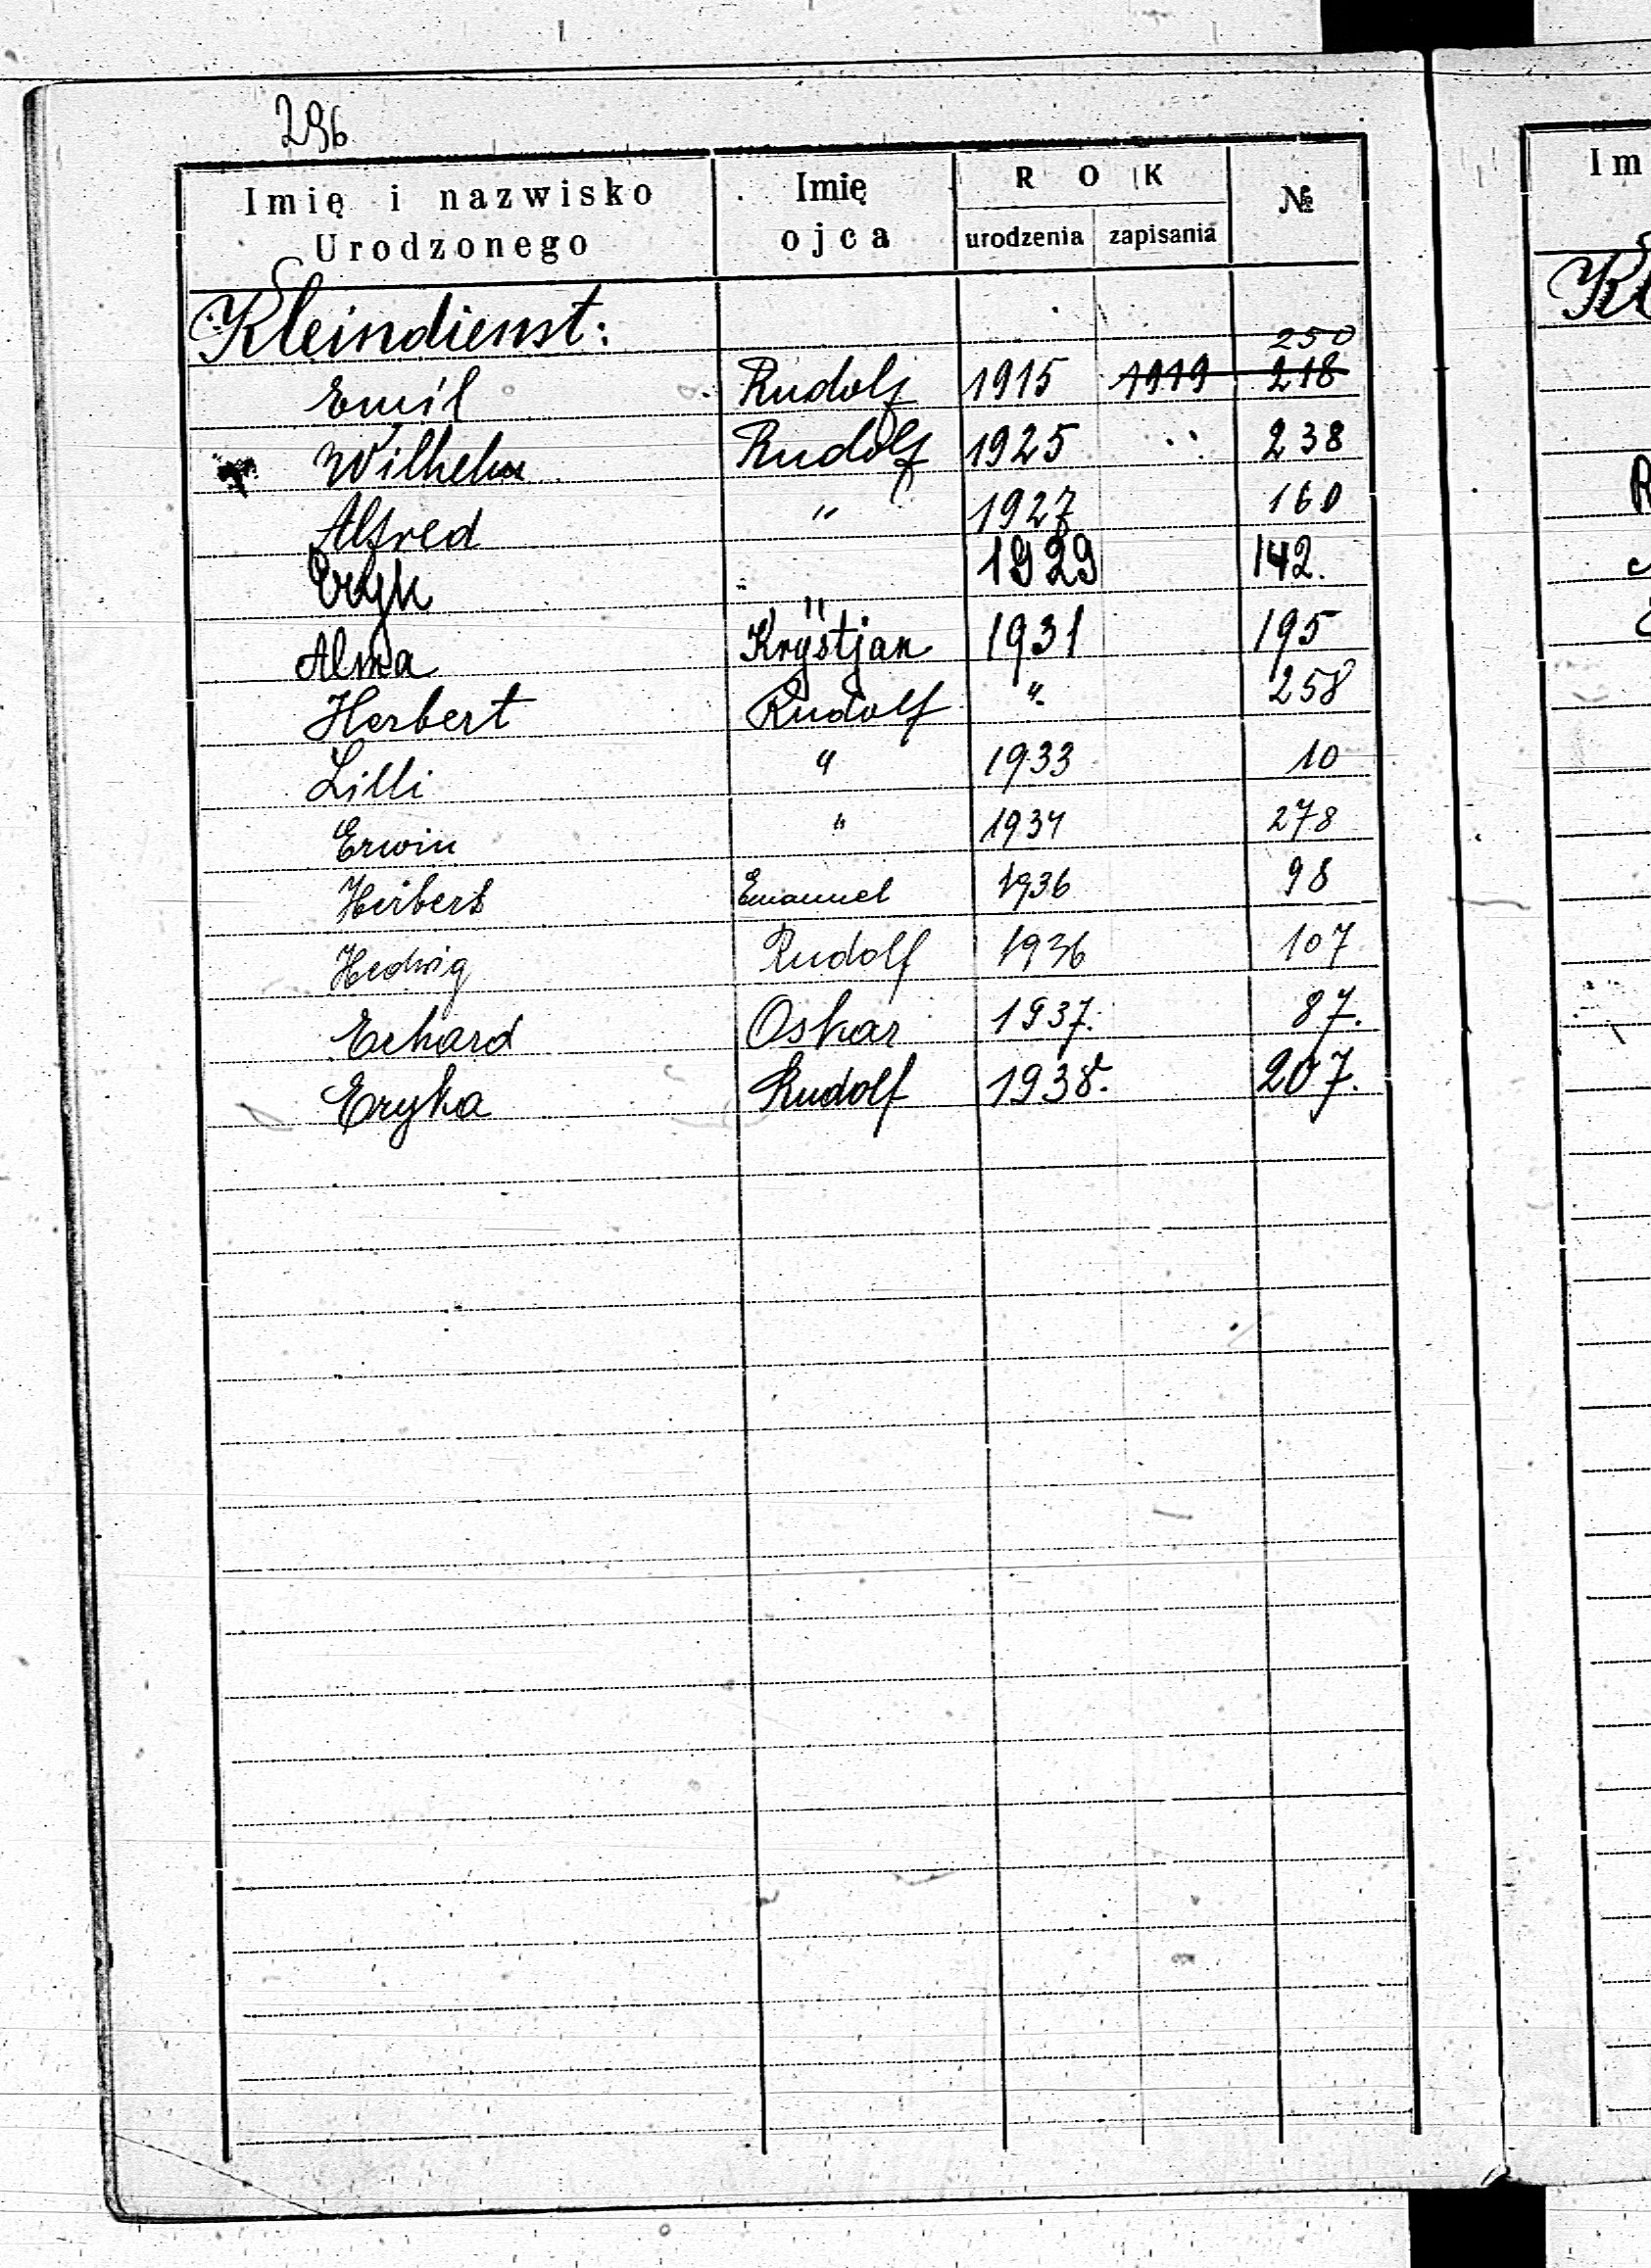 296
Imię i nazwisko Urodzonego Imię ojca ROK urodzenia zapisania №
Kleindienst:
250
Emil Rudolf 1915 1919 218
Wilhelm Rudolf 1925 " 238
Alfred " 1927 160
Eryk " 1929 142.
Alma Krystjan 1931 195
Herbert Rudolf " 258
Lilli " 1933 10
Erwin " 1934 278
Herbert Emanuel 1936 98
Hedwig Rudolf 1936 107
Erhard Oskar 1937. 87.
Eryka Rudolf 1938. 207.
Im
Kl